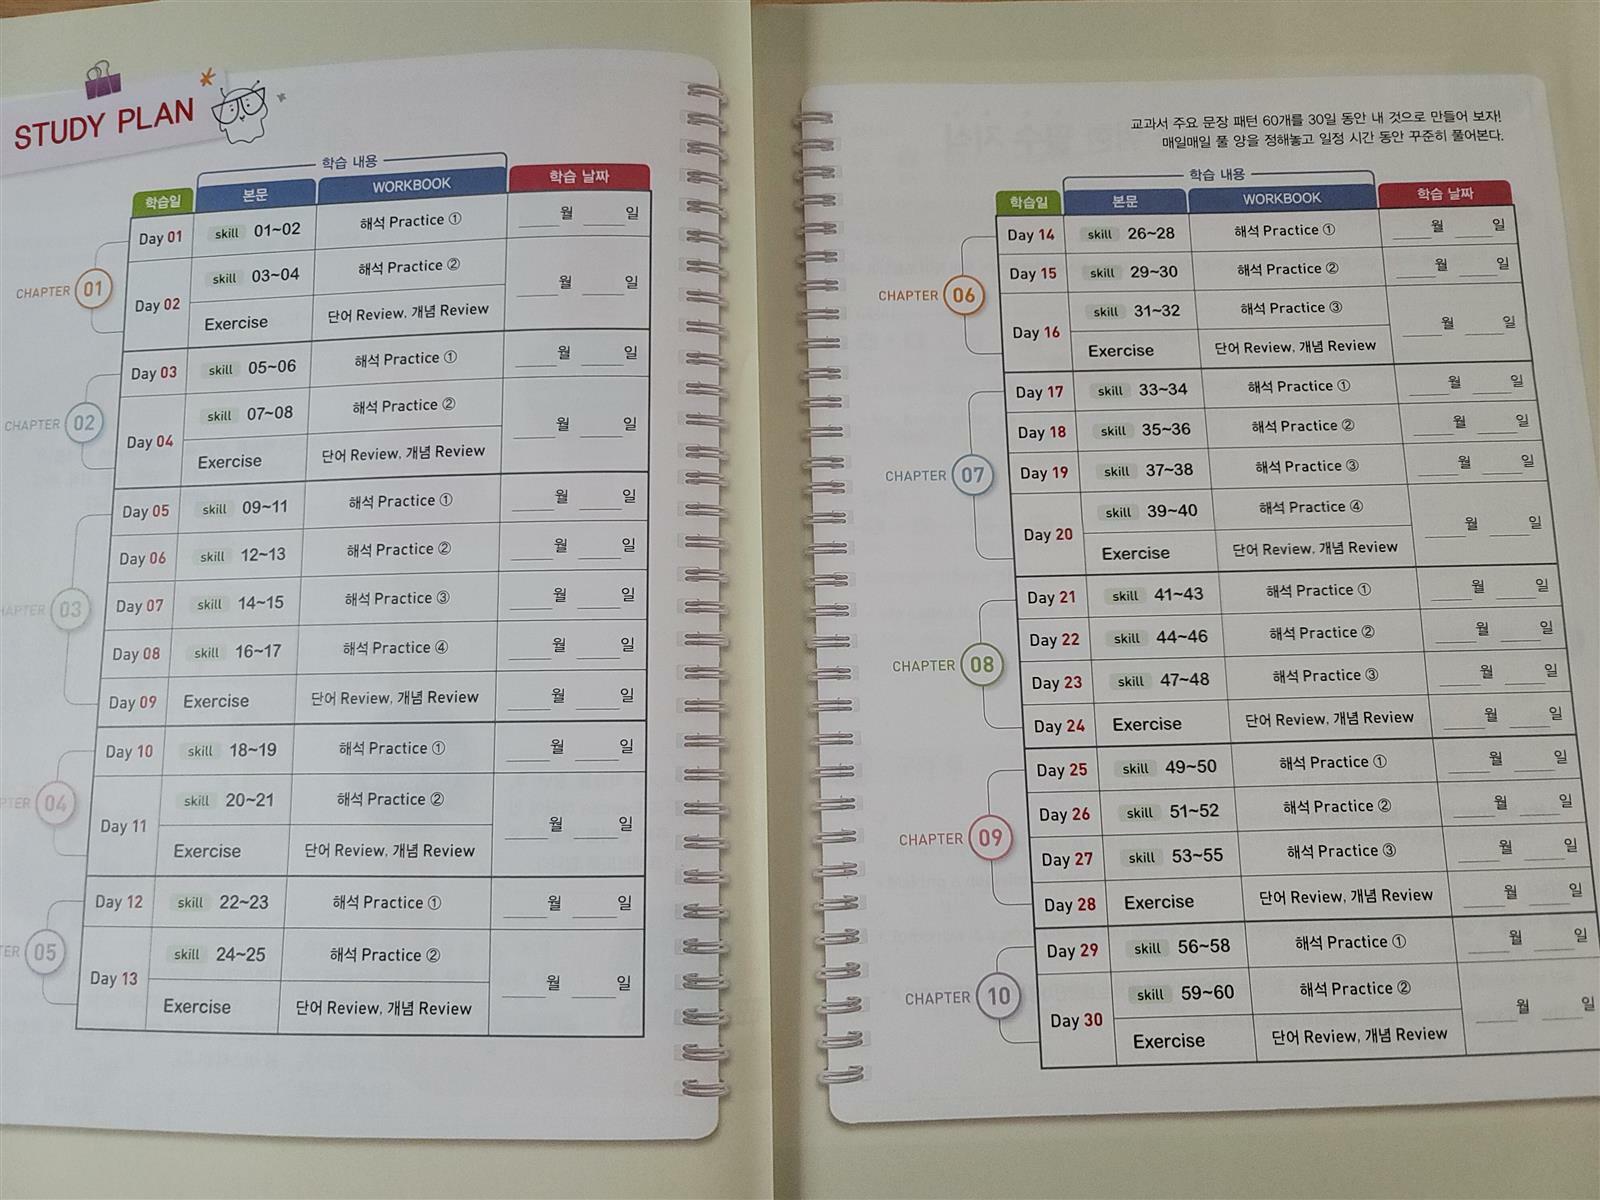 STUDY PLAN
학습 내용
학습일 본문 WORKBOOK 학습 날짜
CHAPTER 01
Day 01 skill 01~02 해석 Practice ① 월 일
Day 02 skill 03~04 해석 Practice ② 월 일
Exercise 단어 Review, 개념 Review
CHAPTER 02
Day 03 skill 05~06 해석 Practice ① 월 일
Day 04 skill 07~08 해석 Practice ② 월 일
Exercise 단어 Review, 개념 Review
HAPTER 03
Day 05 skill 09~11 해석 Practice ① 월 일
Day 06 skill 12~13 해석 Practice ② 월 일
Day 07 skill 14~15 해석 Practice ③ 월 일
Day 08 skill 16~17 해석 Practice ④ 월 일
Day 09 Exercise 단어 Review, 개념 Review 월 일
PTER 04
Day 10 skill 18~19 해석 Practice ① 월 일
Day 11 skill 20~21 해석 Practice ② 월 일
Exercise 단어 Review, 개념 Review
TER 05
Day 12 skill 22~23 해석 Practice ① 월 일
Day 13 skill 24~25 해석 Practice ② 월 일
Exercise 단어 Review, 개념 Review
교과서 주요 문장 패턴 60개를 30일 동안 내 것으로 만들어 보자!
매일매일 풀 양을 정해놓고 일정 시간 동안 꾸준히 풀어본다.
학습 내용
학습일 본문 WORKBOOK 학습 날짜
CHAPTER 06
Day 14 skill 26~28 해석 Practice ① 월 일
Day 15 skill 29~30 해석 Practice ② 월 일
Day 16 skill 31~32 해석 Practice ③ 월 일
Exercise 단어 Review, 개념 Review
CHAPTER 07
Day 17 skill 33~34 해석 Practice ① 월 일
Day 18 skill 35~36 해석 Practice ② 월 일
Day 19 skill 37~38 해석 Practice ③ 월 일
Day 20 skill 39~40 해석 Practice ④ 월 일
Exercise 단어 Review, 개념 Review
CHAPTER 08
Day 21 skill 41~43 해석 Practice ① 월 일
Day 22 skill 44~46 해석 Practice ② 월 일
Day 23 skill 47~48 해석 Practice ③ 월 일
Day 24 Exercise 단어 Review, 개념 Review 월 일
CHAPTER 09
Day 25 skill 49~50 해석 Practice ① 월 일
Day 26 skill 51~52 해석 Practice ② 월 일
Day 27 skill 53~55 해석 Practice ③ 월 일
Day 28 Exercise 단어 Review, 개념 Review 월 일
CHAPTER 10
Day 29 skill 56~58 해석 Practice ① 월 일
Day 30 skill 59~60 해석 Practice ② 월 일
Exercise 단어 Review, 개념 Review